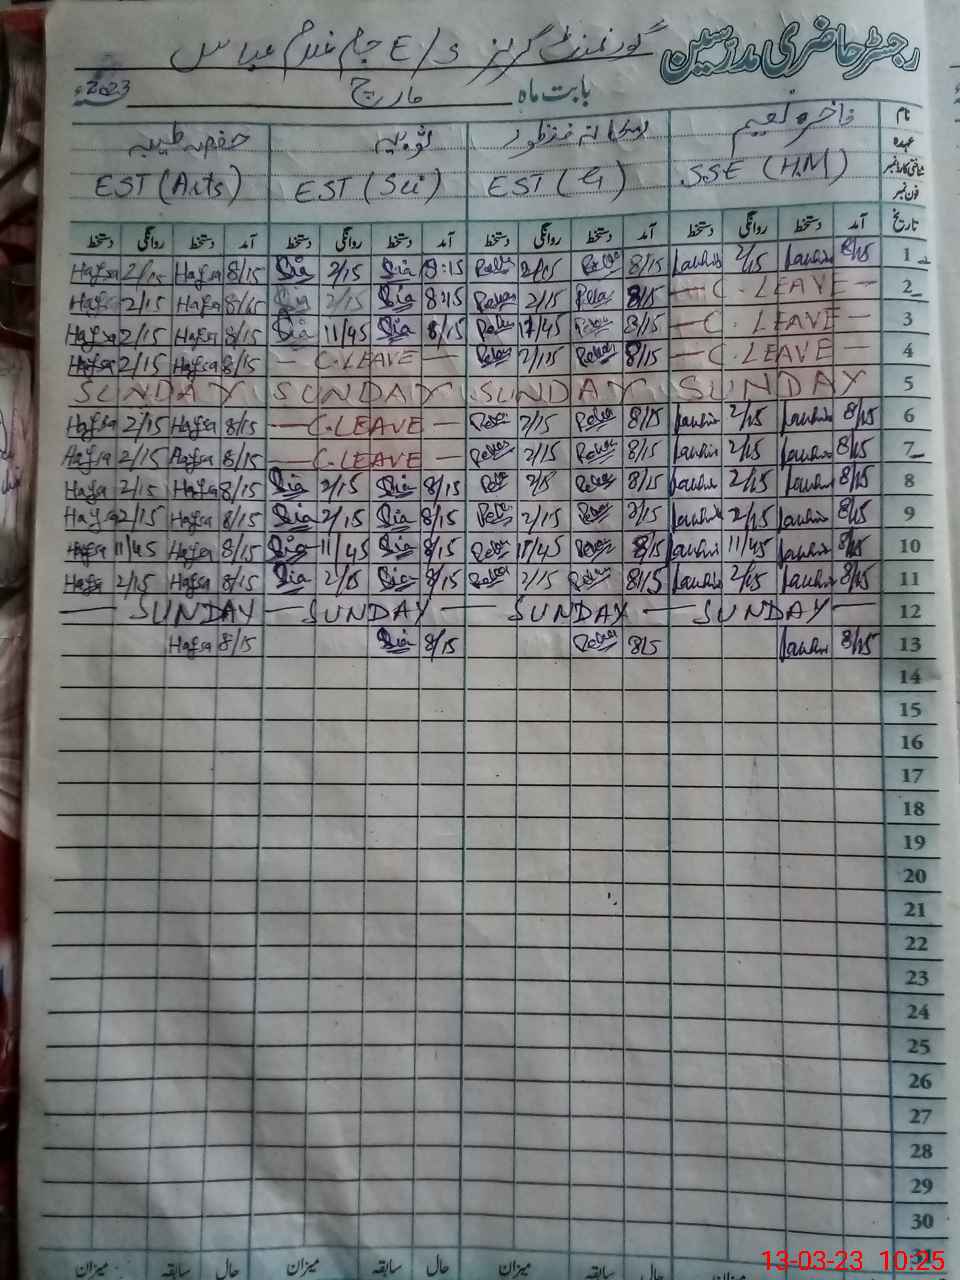 رجسٹر حاضری مدرسین گورنمنٹ گرلز E/S جام غلام عباس
بابت ماہ مارچ 2023ء
نام فاخرہ نعیم ثوبیہ حفصہ طیبہ
عہدہ
شناختی کارڈ نمبر SSE (HM) EST (G) EST (Sci) EST (Arts)
فون نمبر
تاریخ آمد دستخط روانگی دستخط آمد دستخط روانگی دستخط آمد دستخط روانگی دستخط آمد دستخط روانگی دستخط
Hafsa 2/15 Hafsa 8/15 Sia 2/15 Sia 8:15 2/15 8/15 2/15 8/15 1
2/15 Hafsa 8/15 2/15 Sia 8:15 2/15 8/15 — C. LEAVE — 2
Hafsa 2/15 Hafsa 8/15 Sia 11/45 Sia 8/15 11/45 8/15 — C. LEAVE 3
Hafsa 2/15 Hafsa 8/15 — C.LEAVE — 2/15 8/15 — C. LEAVE — 4
SUNDAY SUNDAY SUNDAY SUNDAY 5
Hafsa 2/15 Hafsa 8/15 — C.LEAVE — 2/15 8/15 2/15 8/15 6
Hafsa 2/15 Hafsa 8/15 — C.LEAVE — 2/15 8/15 2/15 8/15 7
Hafsa 2/15 Hafsa 8/15 Sia 2/15 Sia 8/15 8/15 2/15 8/15 8
Hafsa 2/15 Hafsa 8/15 Sia 2/15 Sia 8/15 2/15 2/15 8/15 9
Hafsa 11/45 Hafsa 8/15 Sia 11/45 Sia 8/15 11/45 8/15 11/45 8/15 10
Hafsa 2/15 Hafsa 8/15 Sia Sia 8/15 2/15 8/15 2/15 8/15 11
— SUNDAY — SUNDAY — SUNDAY — SUNDAY — 12
Hafsa 8/15 Sia 8/15 8/15 8/15 13
14
15
16
17
18
19
20
21
22
23
24
25
26
27
28
29
30
31
حال سابقہ میزان حال سابقہ میزان حال سابقہ میزان میزان
13-03-23 10:25